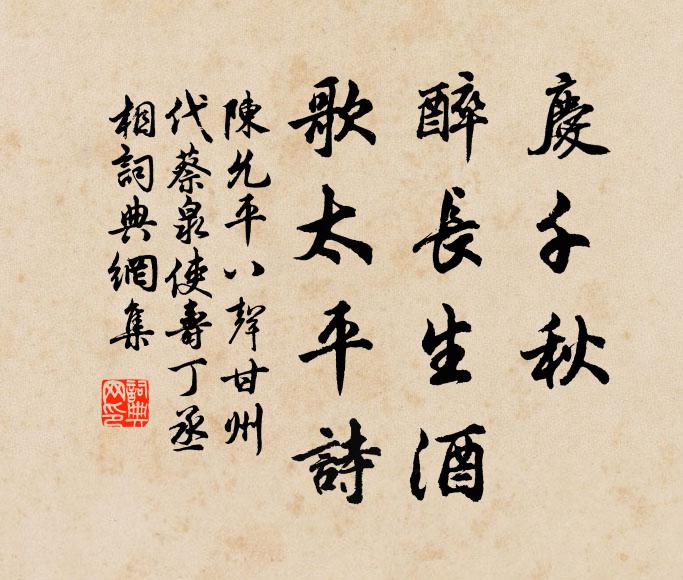 慶千秋
醉長生酒
歌太平詩
陳允平八聲甘州
代蔡泉使壽丁丞
相詞典網集
詞典网印